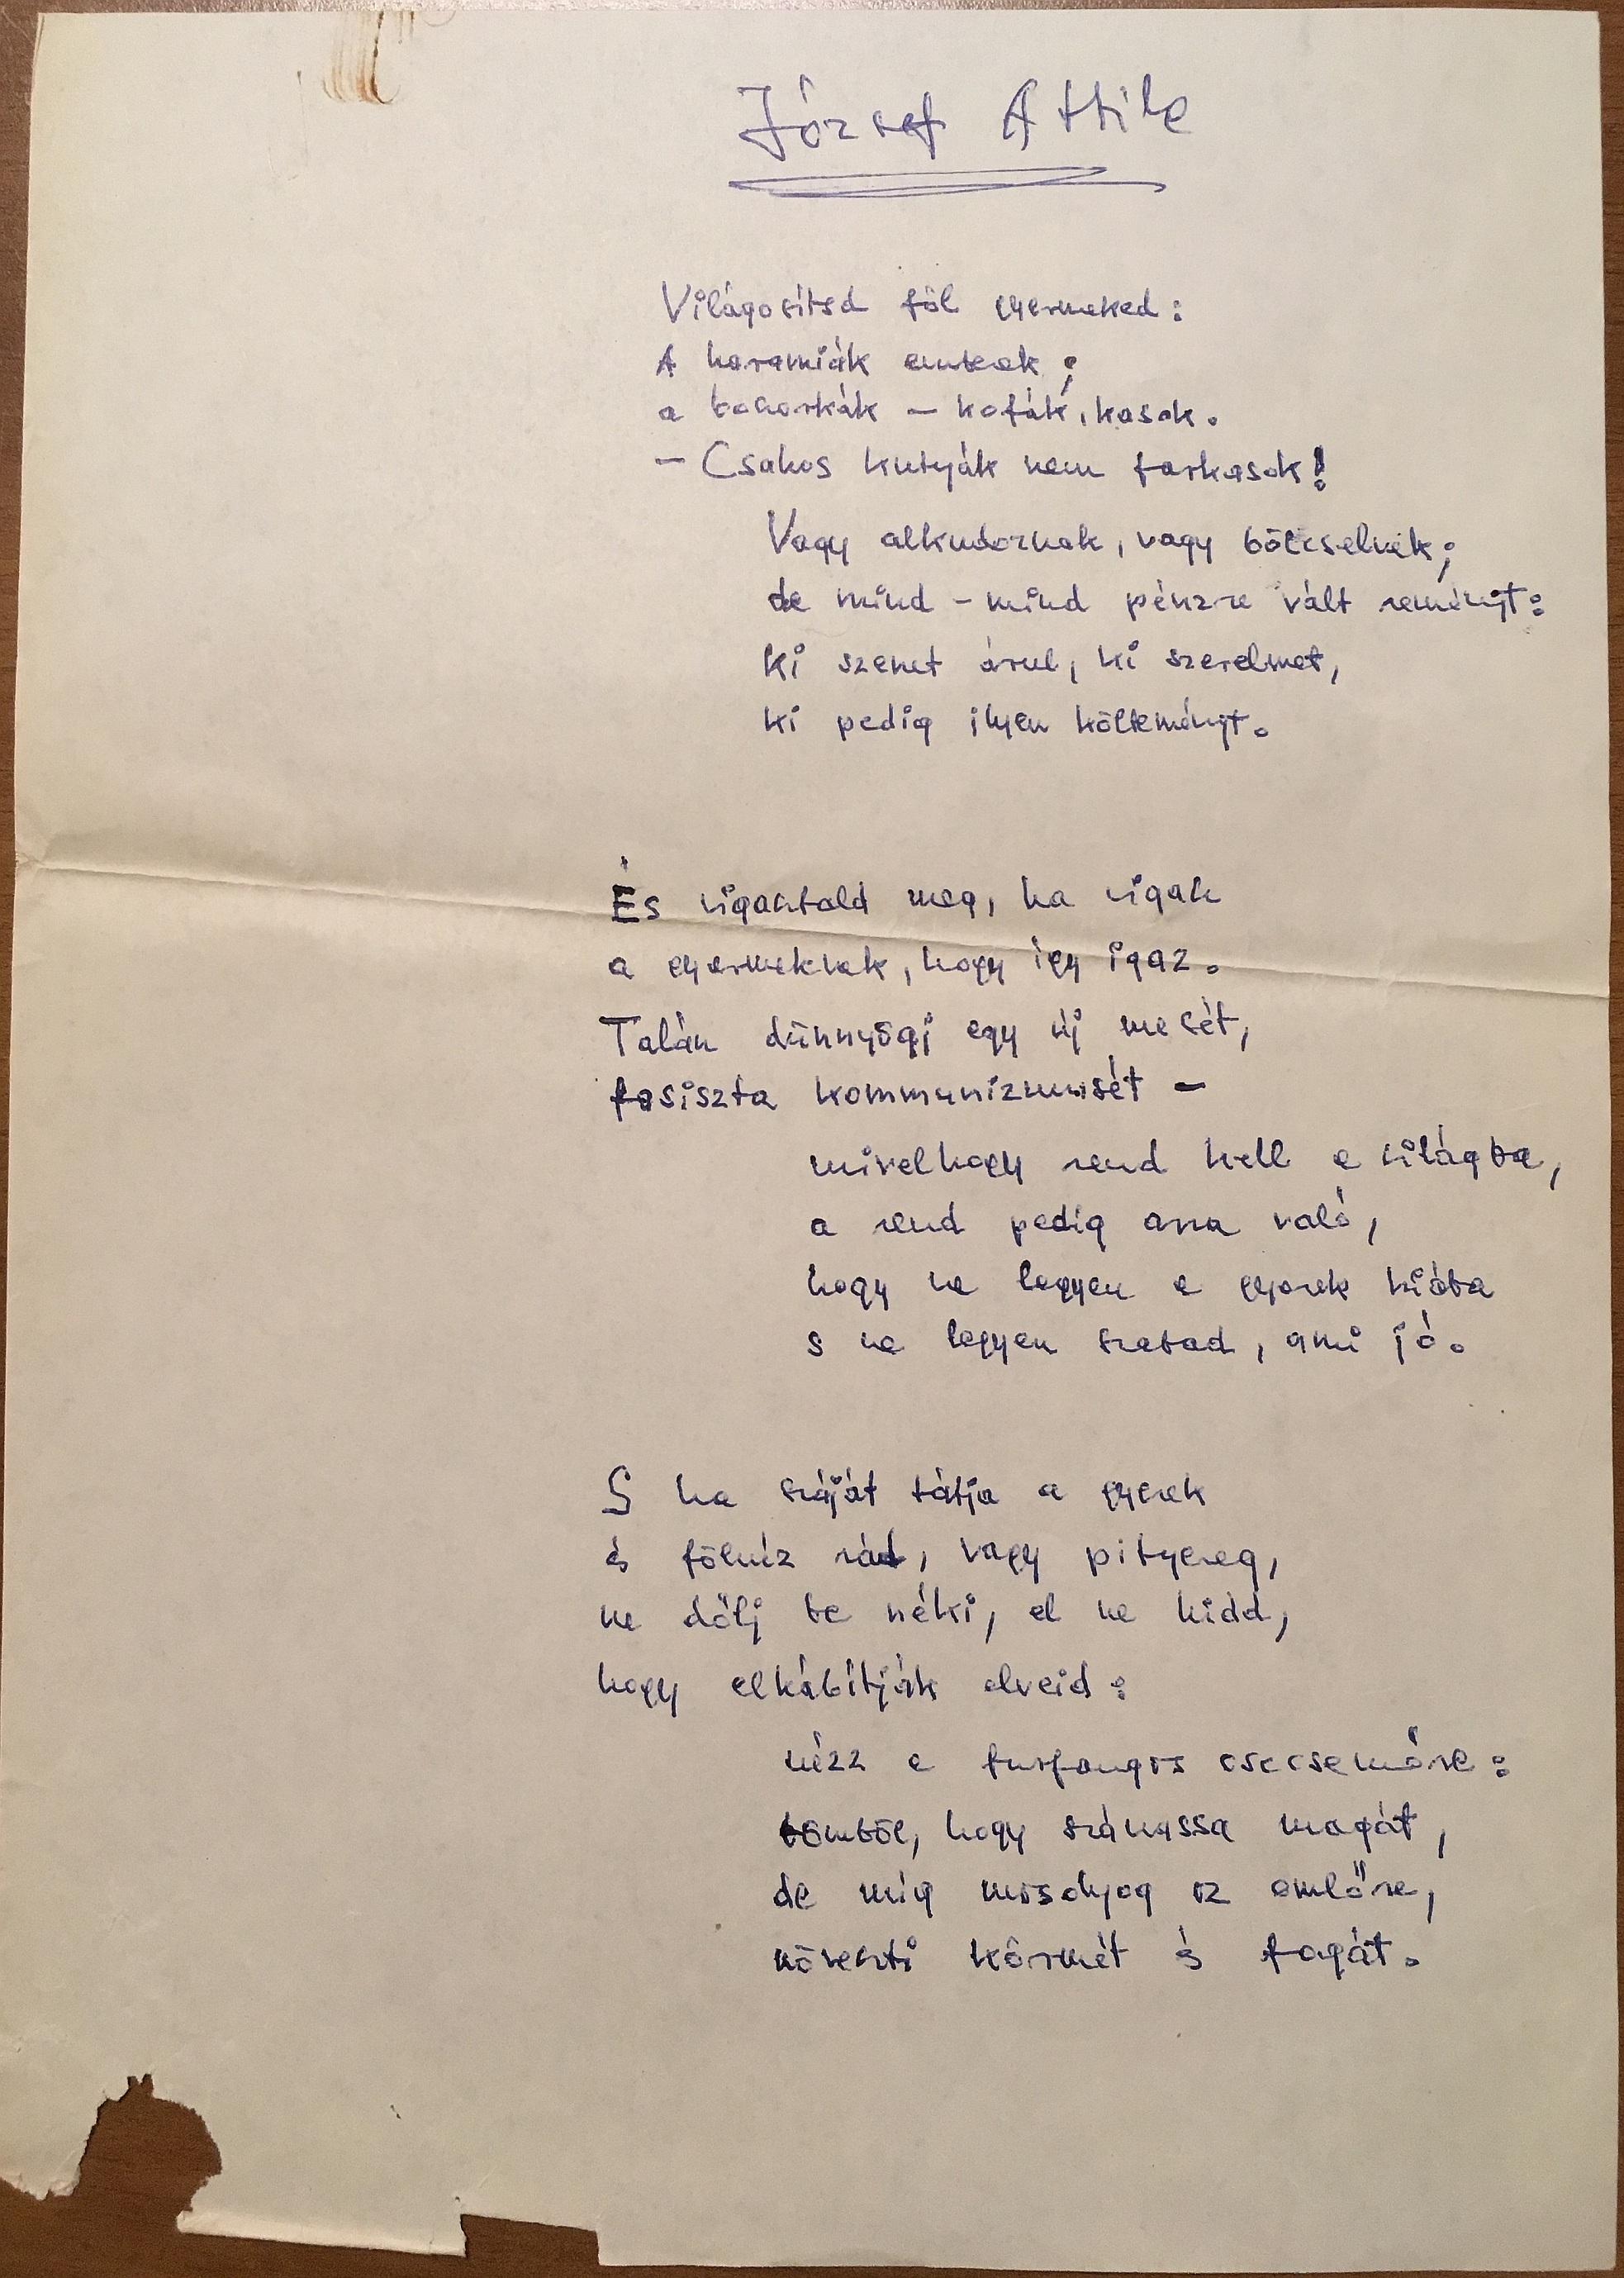 József Attila
Világosítsd föl gyermeked:
A haramiák emberek;
a boszorkák – kofák, kasok.
– Csahos kutyák nem farkasok!
Vagy alkudoznak, vagy bölcselnek;
de mind-mind pénzre vált reményt:
ki szenet árul, ki szerelmet,
ki pedig ilyen költeményt.
És vigasztald meg, ha vigasz
a gyermeknek, hogy így igaz.
Talán dünnyögj egy új mesét,
fasiszta kommunizmusét –
mivelhogy rend kell a világba,
a rend pedig arra való,
hogy ne legyen a gyerek hiába
s ne legyen szabad, ami jó.
S ha száját tátja a gyerek
és fölnéz rád, vagy pityereg,
ne dőlj be néki, el ne hidd,
hogy elkábítják elveid:
nézz a furfangos csecsemőre:
bömböl, hogy szánassa magát,
de míg mosolyog az emlőre,
növeszti körmét és fogát.